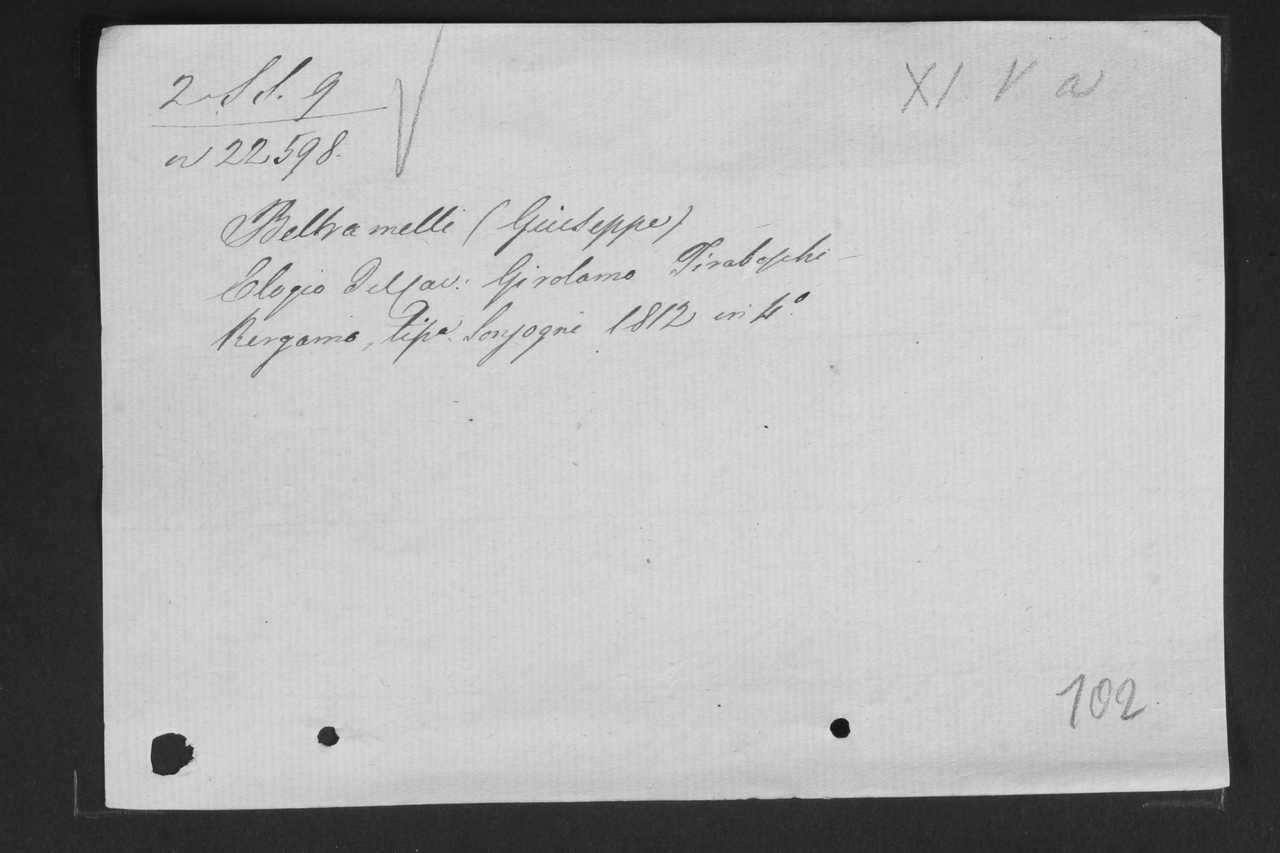 2. S S. 9
XI V a
n 22598.
Beltramelli (Giuseppe)
Elogio del Cav: Girolamo Tiraboschi -
Bergamo, tipa. Sonzogni 1812 in 4.º
102